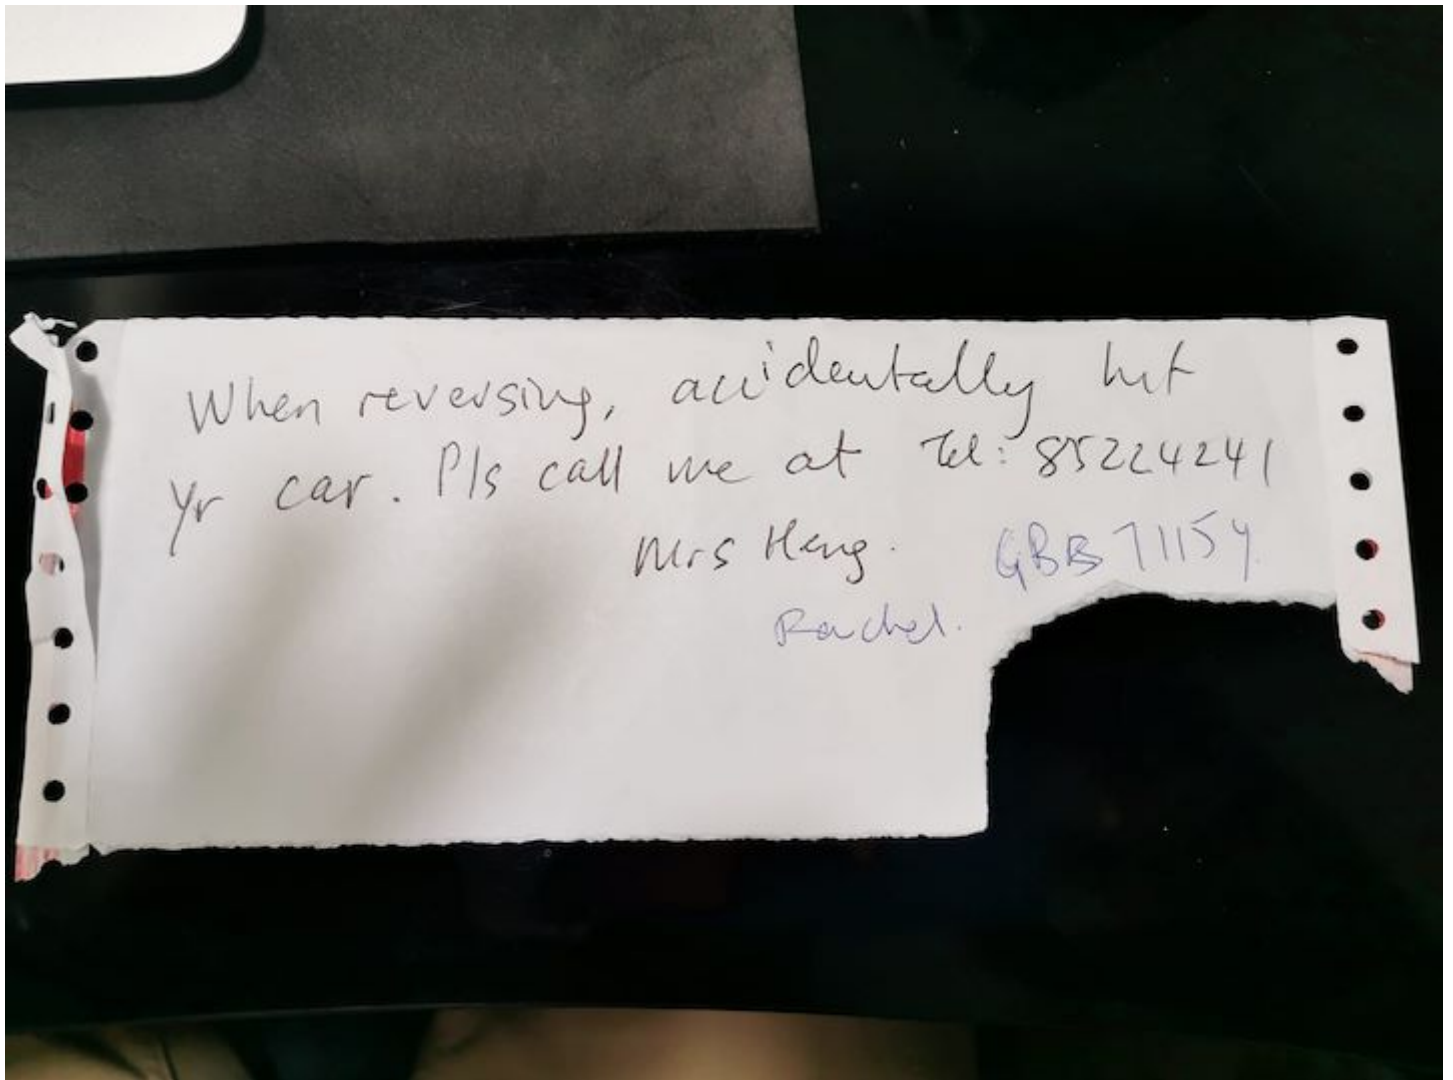 When reversing, accidentally hit
yr car. Pls call me at Tel: 85224241
Mrs Heng. GBB7115Y
Rachel.